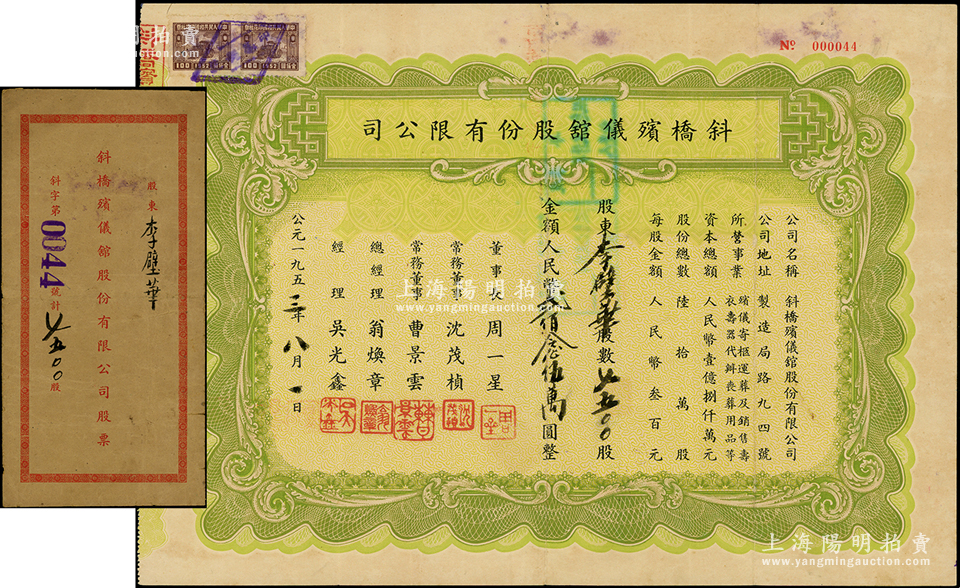 Nº 000044
斜橋殯儀舘股份有限公司
公司名稱 斜橋殯儀舘股份有限公司
公司地址 製造局路九四號
所營事業 殯儀寄柩運葬及銷售壽
衣壽器代辦喪葬用品等
資本總額 人民幣壹億捌仟萬元
股份總數 陸拾萬股
每股金額 人民幣叁百元
股東 李壁華 股數 股
金額人民幣 佰 伍萬圓整
董事長 周一星
常務董事 沈茂楨
常務董事 曹景雲
總經理 翁煥章
經理 吳光鑫
公元一九五三年八月一日
100 1952
100 1952
斜橋殯儀舘股份有限公司股票
股東 李壁華
斜字第0044號計 股
上海陽明拍賣
www.yangmingauction.com
上海陽明拍賣
www.yangmingauction.com